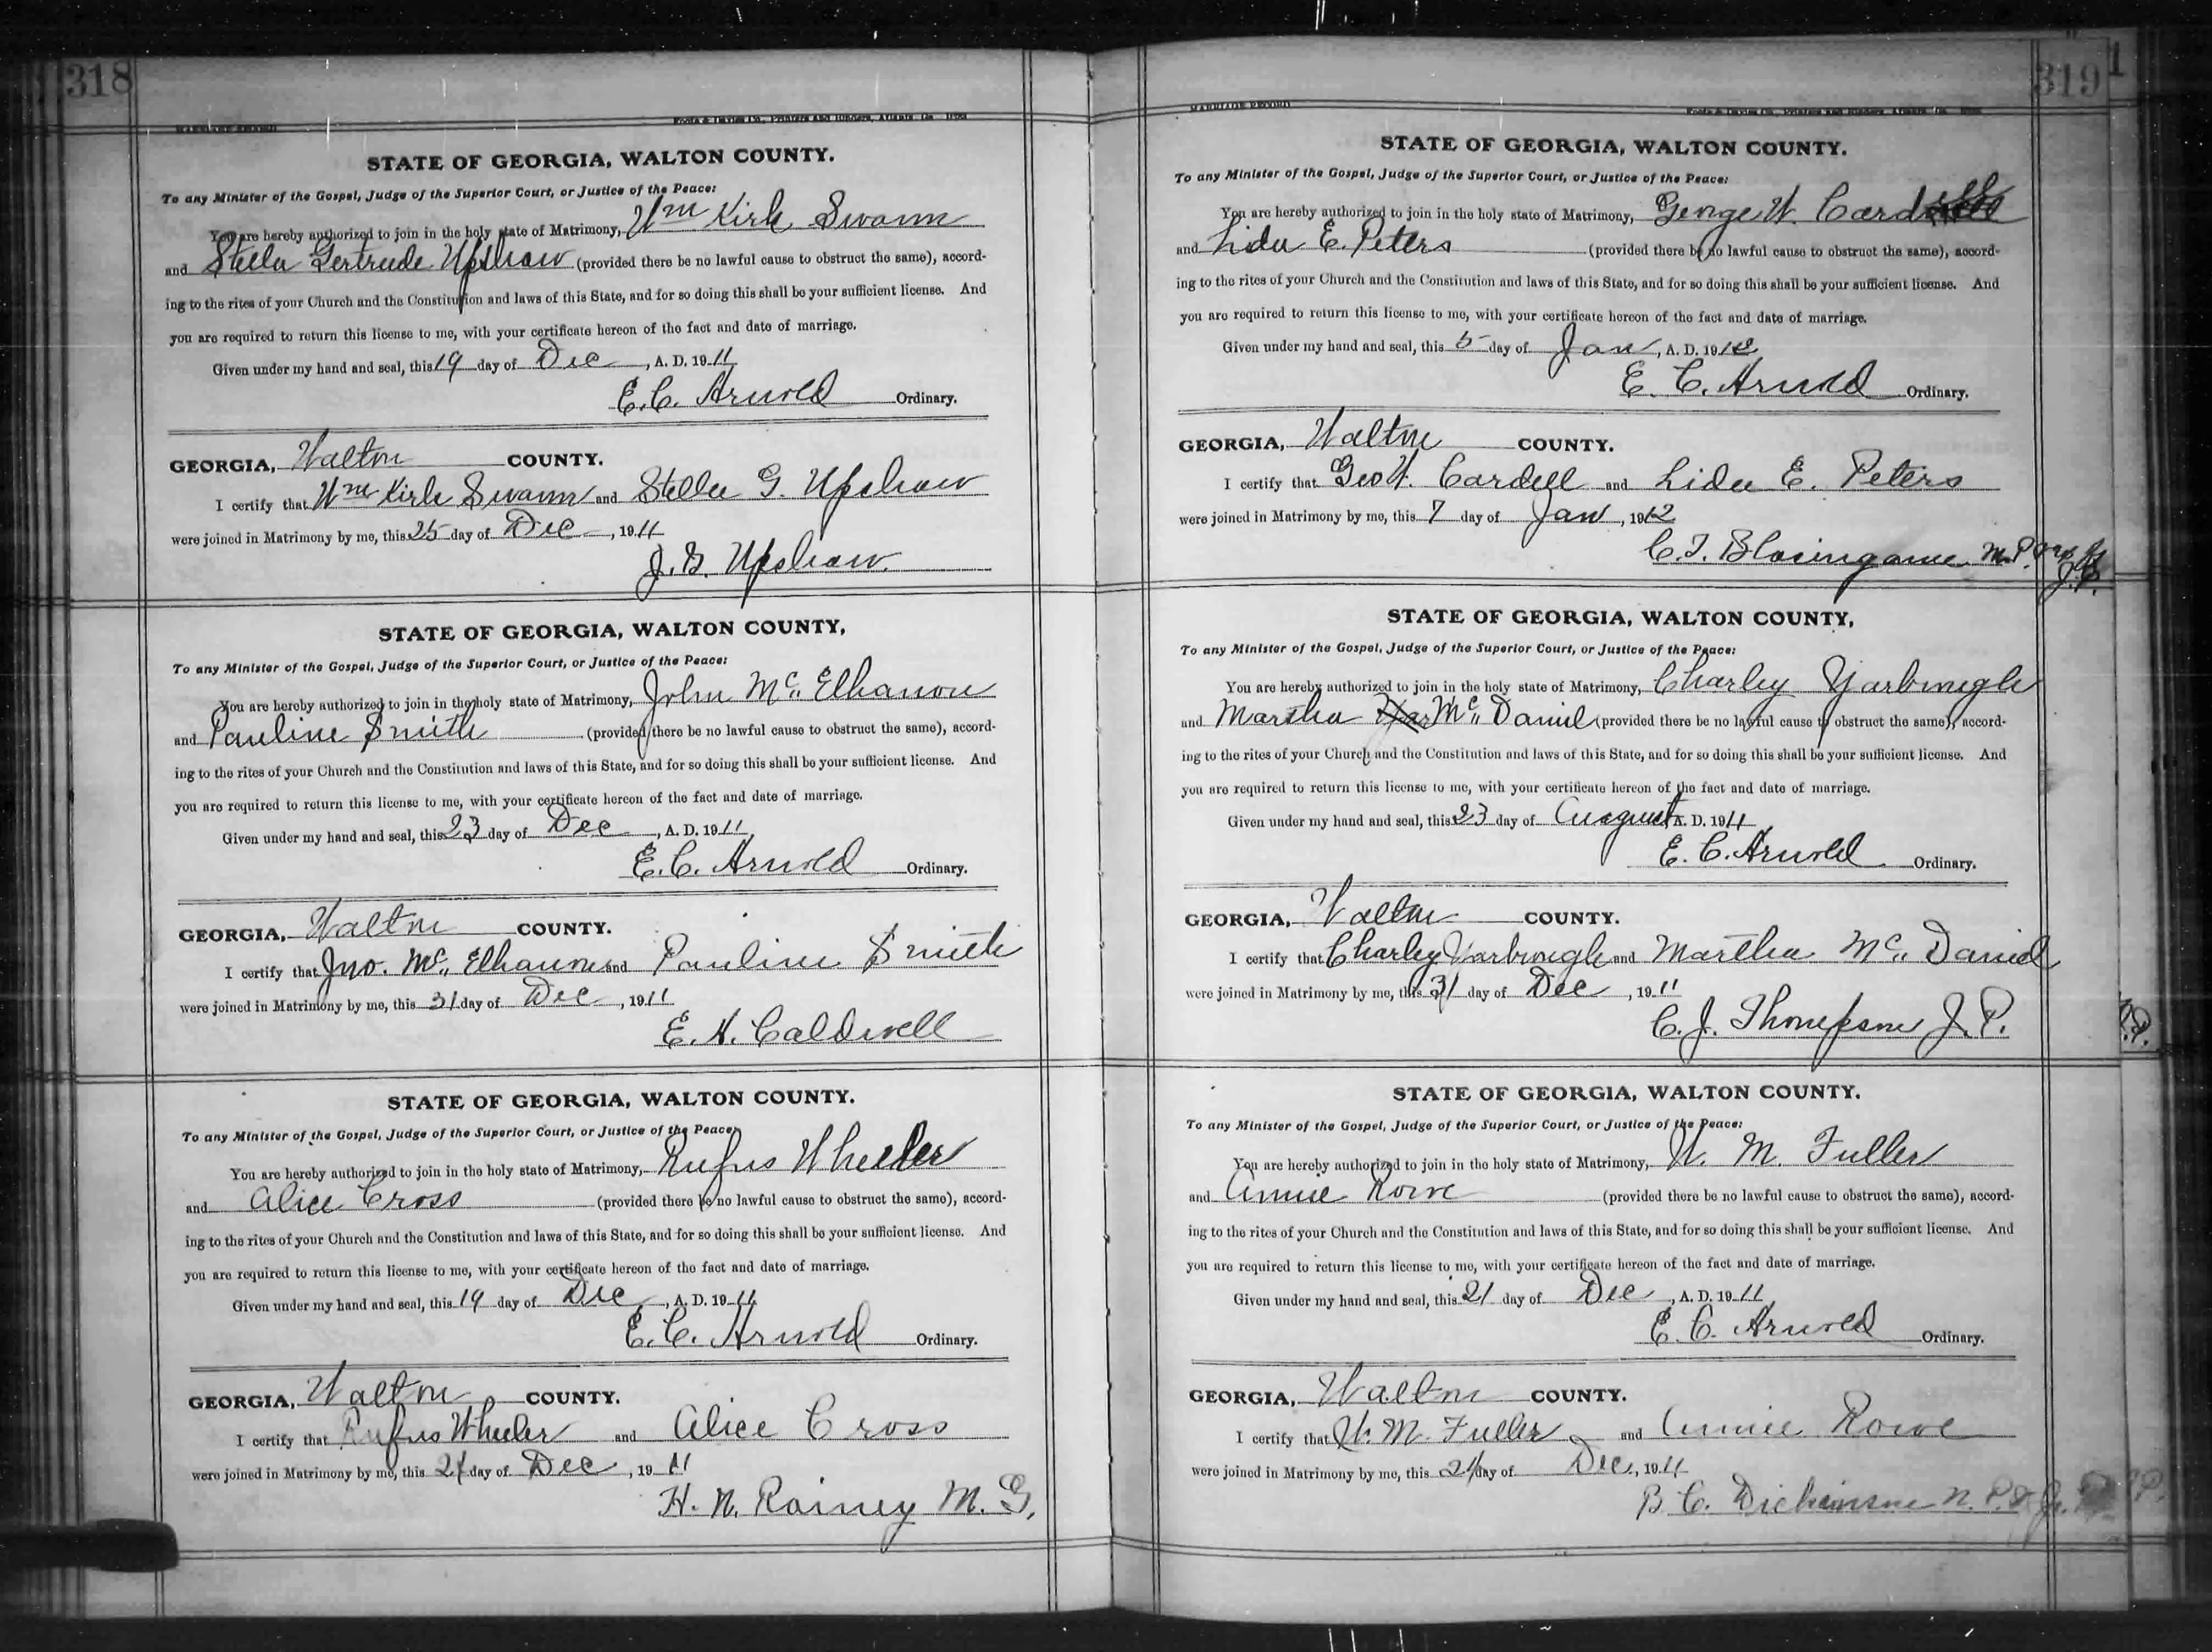 318
MARRIAGE RECORD
Foote & Davies Co., Printers and Binders, Atlanta, Ga.
STATE OF GEORGIA, WALTON COUNTY.
To any Minister of the Gospel, Judge of the Superior Court, or Justice of the Peace:
You are hereby authorized to join in the holy state of Matrimony, Wm Kirk Swann
and Stella Gertrude Upshaw (provided there be no lawful cause to obstruct the same), accord-
ing to the rites of your Church and the Constitution and laws of this State, and for so doing this shall be your sufficient license. And
you are required to return this license to me, with your certificate hereon of the fact and date of marriage.
Given under my hand and seal, this 19 day of Dec, A. D. 1911
E. C. Arnold Ordinary.
GEORGIA, Walton COUNTY.
I certify that Wm Kirk Swann and Stella G. Upshaw
were joined in Matrimony by me, this 25 day of Dec, 1911
J. G. Upshaw.
STATE OF GEORGIA, WALTON COUNTY,
To any Minister of the Gospel, Judge of the Superior Court, or Justice of the Peace:
You are hereby authorized to join in the holy state of Matrimony, John McElhanon
and Pauline Smith (provided there be no lawful cause to obstruct the same), accord-
ing to the rites of your Church and the Constitution and laws of this State, and for so doing this shall be your sufficient license. And
you are required to return this license to me, with your certificate hereon of the fact and date of marriage.
Given under my hand and seal, this 23 day of Dec, A. D. 1911
E. C. Arnold Ordinary.
GEORGIA, Walton COUNTY.
I certify that Jno. McElhanon and Pauline Smith
were joined in Matrimony by me, this 31 day of Dec, 1911
E. H. Caldwell
STATE OF GEORGIA, WALTON COUNTY.
To any Minister of the Gospel, Judge of the Superior Court, or Justice of the Peace:
You are hereby authorized to join in the holy state of Matrimony, Rufus Wheeler
and Alice Cross (provided there be no lawful cause to obstruct the same), accord-
ing to the rites of your Church and the Constitution and laws of this State, and for so doing this shall be your sufficient license. And
you are required to return this license to me, with your certificate hereon of the fact and date of marriage.
Given under my hand and seal, this 19 day of Dec, A. D. 1911
E. C. Arnold Ordinary.
GEORGIA, Walton COUNTY.
I certify that Rufus Wheeler and Alice Cross
were joined in Matrimony by me, this 21 day of Dec, 1911
H. N. Rainey M. G.
319
MARRIAGE RECORD
Foote & Davies Co., Printers and Binders, Atlanta, Ga.
STATE OF GEORGIA, WALTON COUNTY.
To any Minister of the Gospel, Judge of the Superior Court, or Justice of the Peace:
You are hereby authorized to join in the holy state of Matrimony, George W. Cardell
and Lida E. Peters (provided there be no lawful cause to obstruct the same), accord-
ing to the rites of your Church and the Constitution and laws of this State, and for so doing this shall be your sufficient license. And
you are required to return this license to me, with your certificate hereon of the fact and date of marriage.
Given under my hand and seal, this 5 day of Jan, A. D. 1912
E. C. Arnold Ordinary.
GEORGIA, Walton COUNTY.
I certify that Geo W. Cardell and Lida E. Peters
were joined in Matrimony by me, this 7 day of Jan, 1912
C. T. Blasingame N. P. J. P.
STATE OF GEORGIA, WALTON COUNTY,
To any Minister of the Gospel, Judge of the Superior Court, or Justice of the Peace:
You are hereby authorized to join in the holy state of Matrimony, Charley Yarbrough
and Martha McDaniel (provided there be no lawful cause to obstruct the same), accord-
ing to the rites of your Church and the Constitution and laws of this State, and for so doing this shall be your sufficient license. And
you are required to return this license to me, with your certificate hereon of the fact and date of marriage.
Given under my hand and seal, this 23 day of August A. D. 1911
E. C. Arnold Ordinary.
GEORGIA, Walton COUNTY.
I certify that Charley Yarbrough and Martha McDaniel
were joined in Matrimony by me, this 31 day of Dec, 1911
C. J. Thompson J. P.
STATE OF GEORGIA, WALTON COUNTY.
To any Minister of the Gospel, Judge of the Superior Court, or Justice of the Peace:
You are hereby authorized to join in the holy state of Matrimony, W. M. Fuller
and Annie Rowe (provided there be no lawful cause to obstruct the same), accord-
ing to the rites of your Church and the Constitution and laws of this State, and for so doing this shall be your sufficient license. And
you are required to return this license to me, with your certificate hereon of the fact and date of marriage.
Given under my hand and seal, this 21 day of Dec, A. D. 1911
E. C. Arnold Ordinary.
GEORGIA, Walton COUNTY.
I certify that W. M. Fuller and Annie Rowe
were joined in Matrimony by me, this 21 day of Dec, 1911
B. C. Dickinson N. P. & J. P.